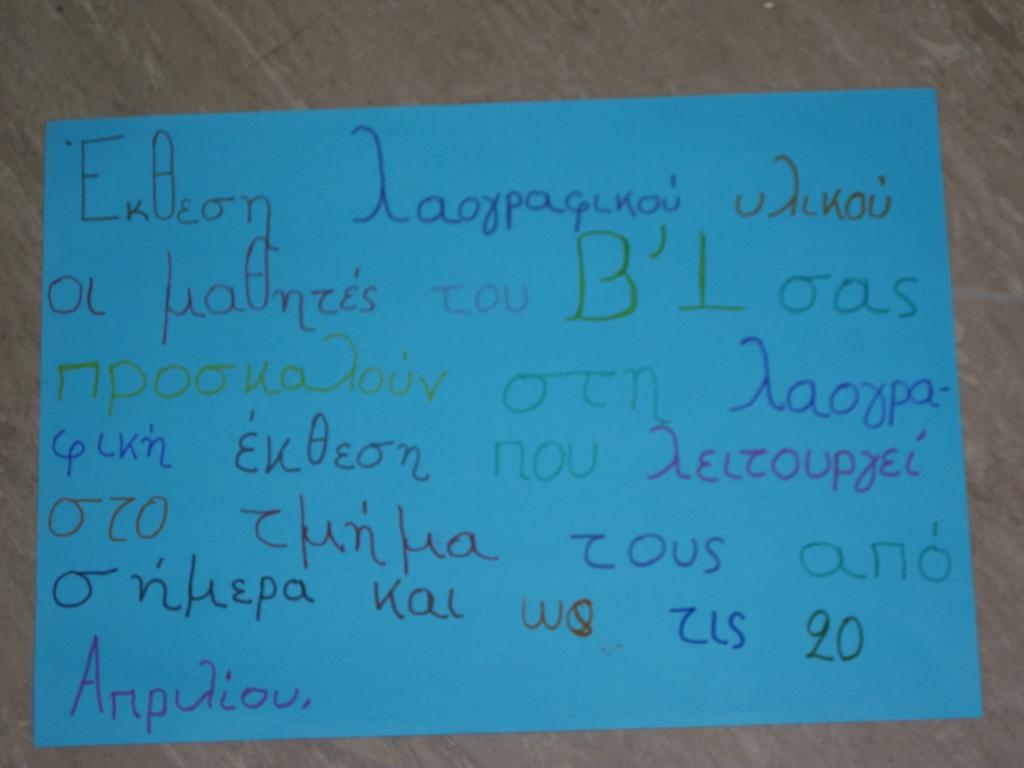 Έκθεση λαογραφικού υλικού
οι μαθητές του Β'1 σας
προσκαλούν στη λαογρα-
φική έκθεση που λειτουργεί
στο τμήμα τους από
σήμερα και ως τις 20
Απριλίου.